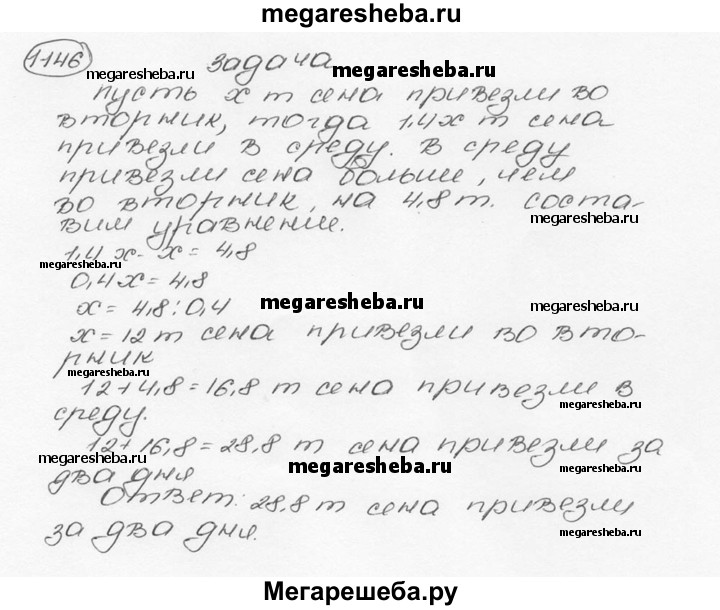 megaresheba.ru
1146
megaresheba.ru
задача
megaresheba.ru
пусть х т сена привезли во
вторник, тогда 1,4х т сена
привезли в среду. В среду
привезли сена больше, чем
во вторник, на 4,8 т. соста-
megaresheba.ru
вим уравнение.
1,4х - х = 4,8
megaresheba.ru
0,4х = 4,8
х = 4,8 : 0,4
megaresheba.ru
megaresheba.ru
х = 12 т сена привезли во вто-
рник
megaresheba.ru
12 + 4,8 = 16,8 т сена привезли в
megaresheba.ru
среду.
12 + 16,8 = 28,8 т сена привезли за
megaresheba.ru
megaresheba.ru
megaresheba.ru
два дня
Ответ: 28,8 т сена привезли
за два дня.
megaresheba.ru
Мегарешеба.ру